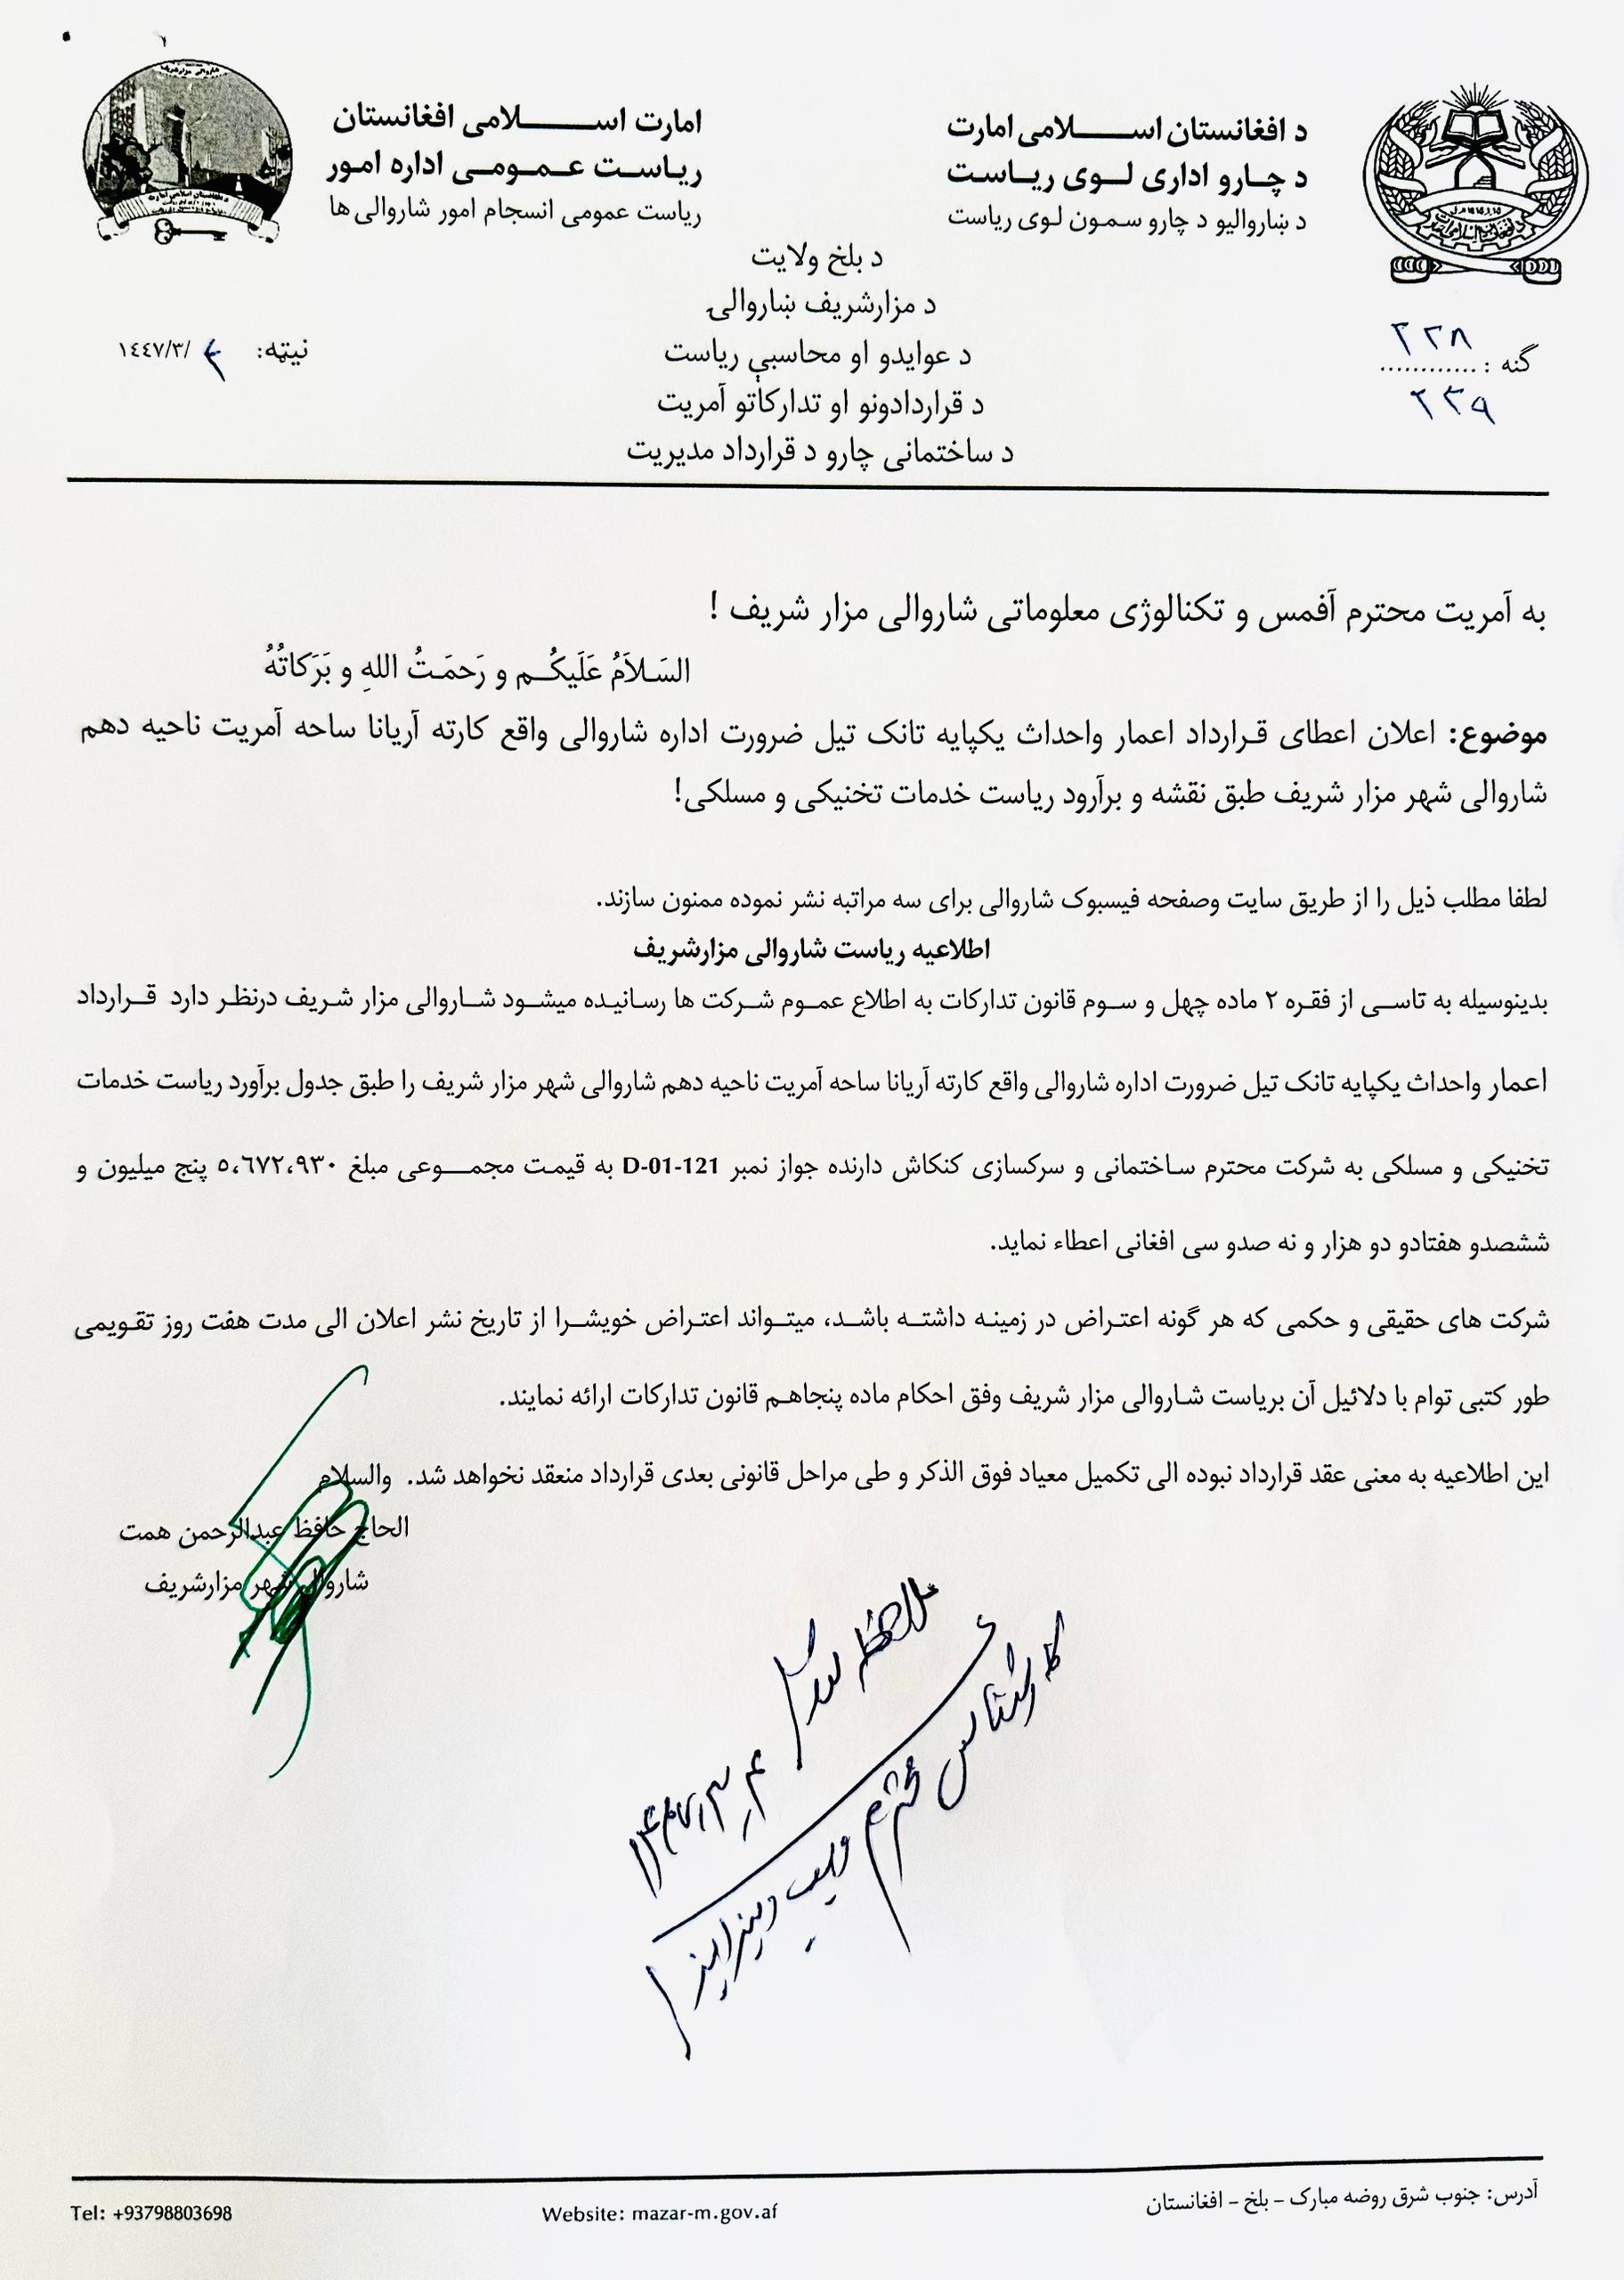 د افغانستان اســــــلامی امارت
د چــارو اداری لــوی ریــاسـت
د ښاروالیو د چارو سمـون لـوی ریاست
امارت اســــــلامی افغانستان
ریـاسـت عـمـومـی اداره امـور
ریاست عمومی انسجام امور شاروالی ها
د بلخ ولایت
د مزارشریف ښاروالۍ
د عوایدو او محاسبې ریاست
د قراردادونو او تدارکاتو آمریت
د ساختمانی چارو د قرارداد مدیریت
گنه : ............ ۲۳۸
۲۳۹
نیټه: ۴ /١٤٤٧/٣
به آمریت محترم آفمس و تکنالوژی معلوماتی شاروالی مزار شریف !
السَـلاَمُ عَلَیکُـــم و رَحمَـتُ اللهِ و بَرَکاتُهُ
موضوع: اعلان اعطای قـرارداد اعمار واحداث یکپایه تانک تیل ضرورت اداره شاروالی واقع کارته آریانا ساحه آمریت ناحیه دهم
شاروالی شهر مزار شریف طبق نقشه و برآرود ریاست خدمات تخنیکی و مسلکی!
لطفا مطلب ذیل را از طریق سایت وصفحه فیسبوک شاروالی برای سه مراتبه نشر نموده ممنون سازند.
اطلاعیه ریاست شاروالی مزارشریف
بدینوسیله به تاسـی از فقـره ۲ ماده چهل و سـوم قانون تدارکات به اطلاع عمـوم شـرکت ها رسـانیـده میشـود شـاروالی مزار شـریف درنظـر دارد قـرارداد
اعمار واحداث یکپایه تانک تیل ضرورت اداره شاروالی واقع کارته آریانا ساحه آمریت ناحیه دهم شاروالی شهر مزار شریف را طبق جدول برآورد ریاست خدمات
تخنیکی و مسلکی به شرکت محترم سـاختمانی و سرکسازی کنکاش دارنده جواز نمبر D-01-121 به قیمـت مجمـــوعی مبلغ ٥،٦٧٢،٩٣٠ پنج میلیون و
ششصدو هفتادو دو هزار و نه صدو سی افغانی اعطاء نماید.
شرکت های حقیقی و حکمی که هر گونه اعتـراض در زمینـه داشتـه باشـد، میتـواند اعتـراض خویشـرا از تاریخ نشر اعلان الی مدت هفت روز تقـویمی
طور کتبی توام با دلائیل آن بریاست شـاروالی مزار شریف وفق احکام ماده پنجاهـم قانون تدارکات ارائه نمایند.
این اطلاعیه به معنی عقد قرارداد نبوده الی تکمیل معیاد فوق الذکر و طی مراحل قانونی بعدی قرارداد منعقد نخواهد شد. والسلام
الحاج حافظ عبدالرحمن همت
شاروال شهر مزارشریف
ملاحظه شد
۱۴۴۷٫۳٫۴
کارشناس محترم ویب
آدرس: جنوب شرق روضه مبارک – بلخ – افغانستان
Website: mazar-m.gov.af
Tel: +93798803698